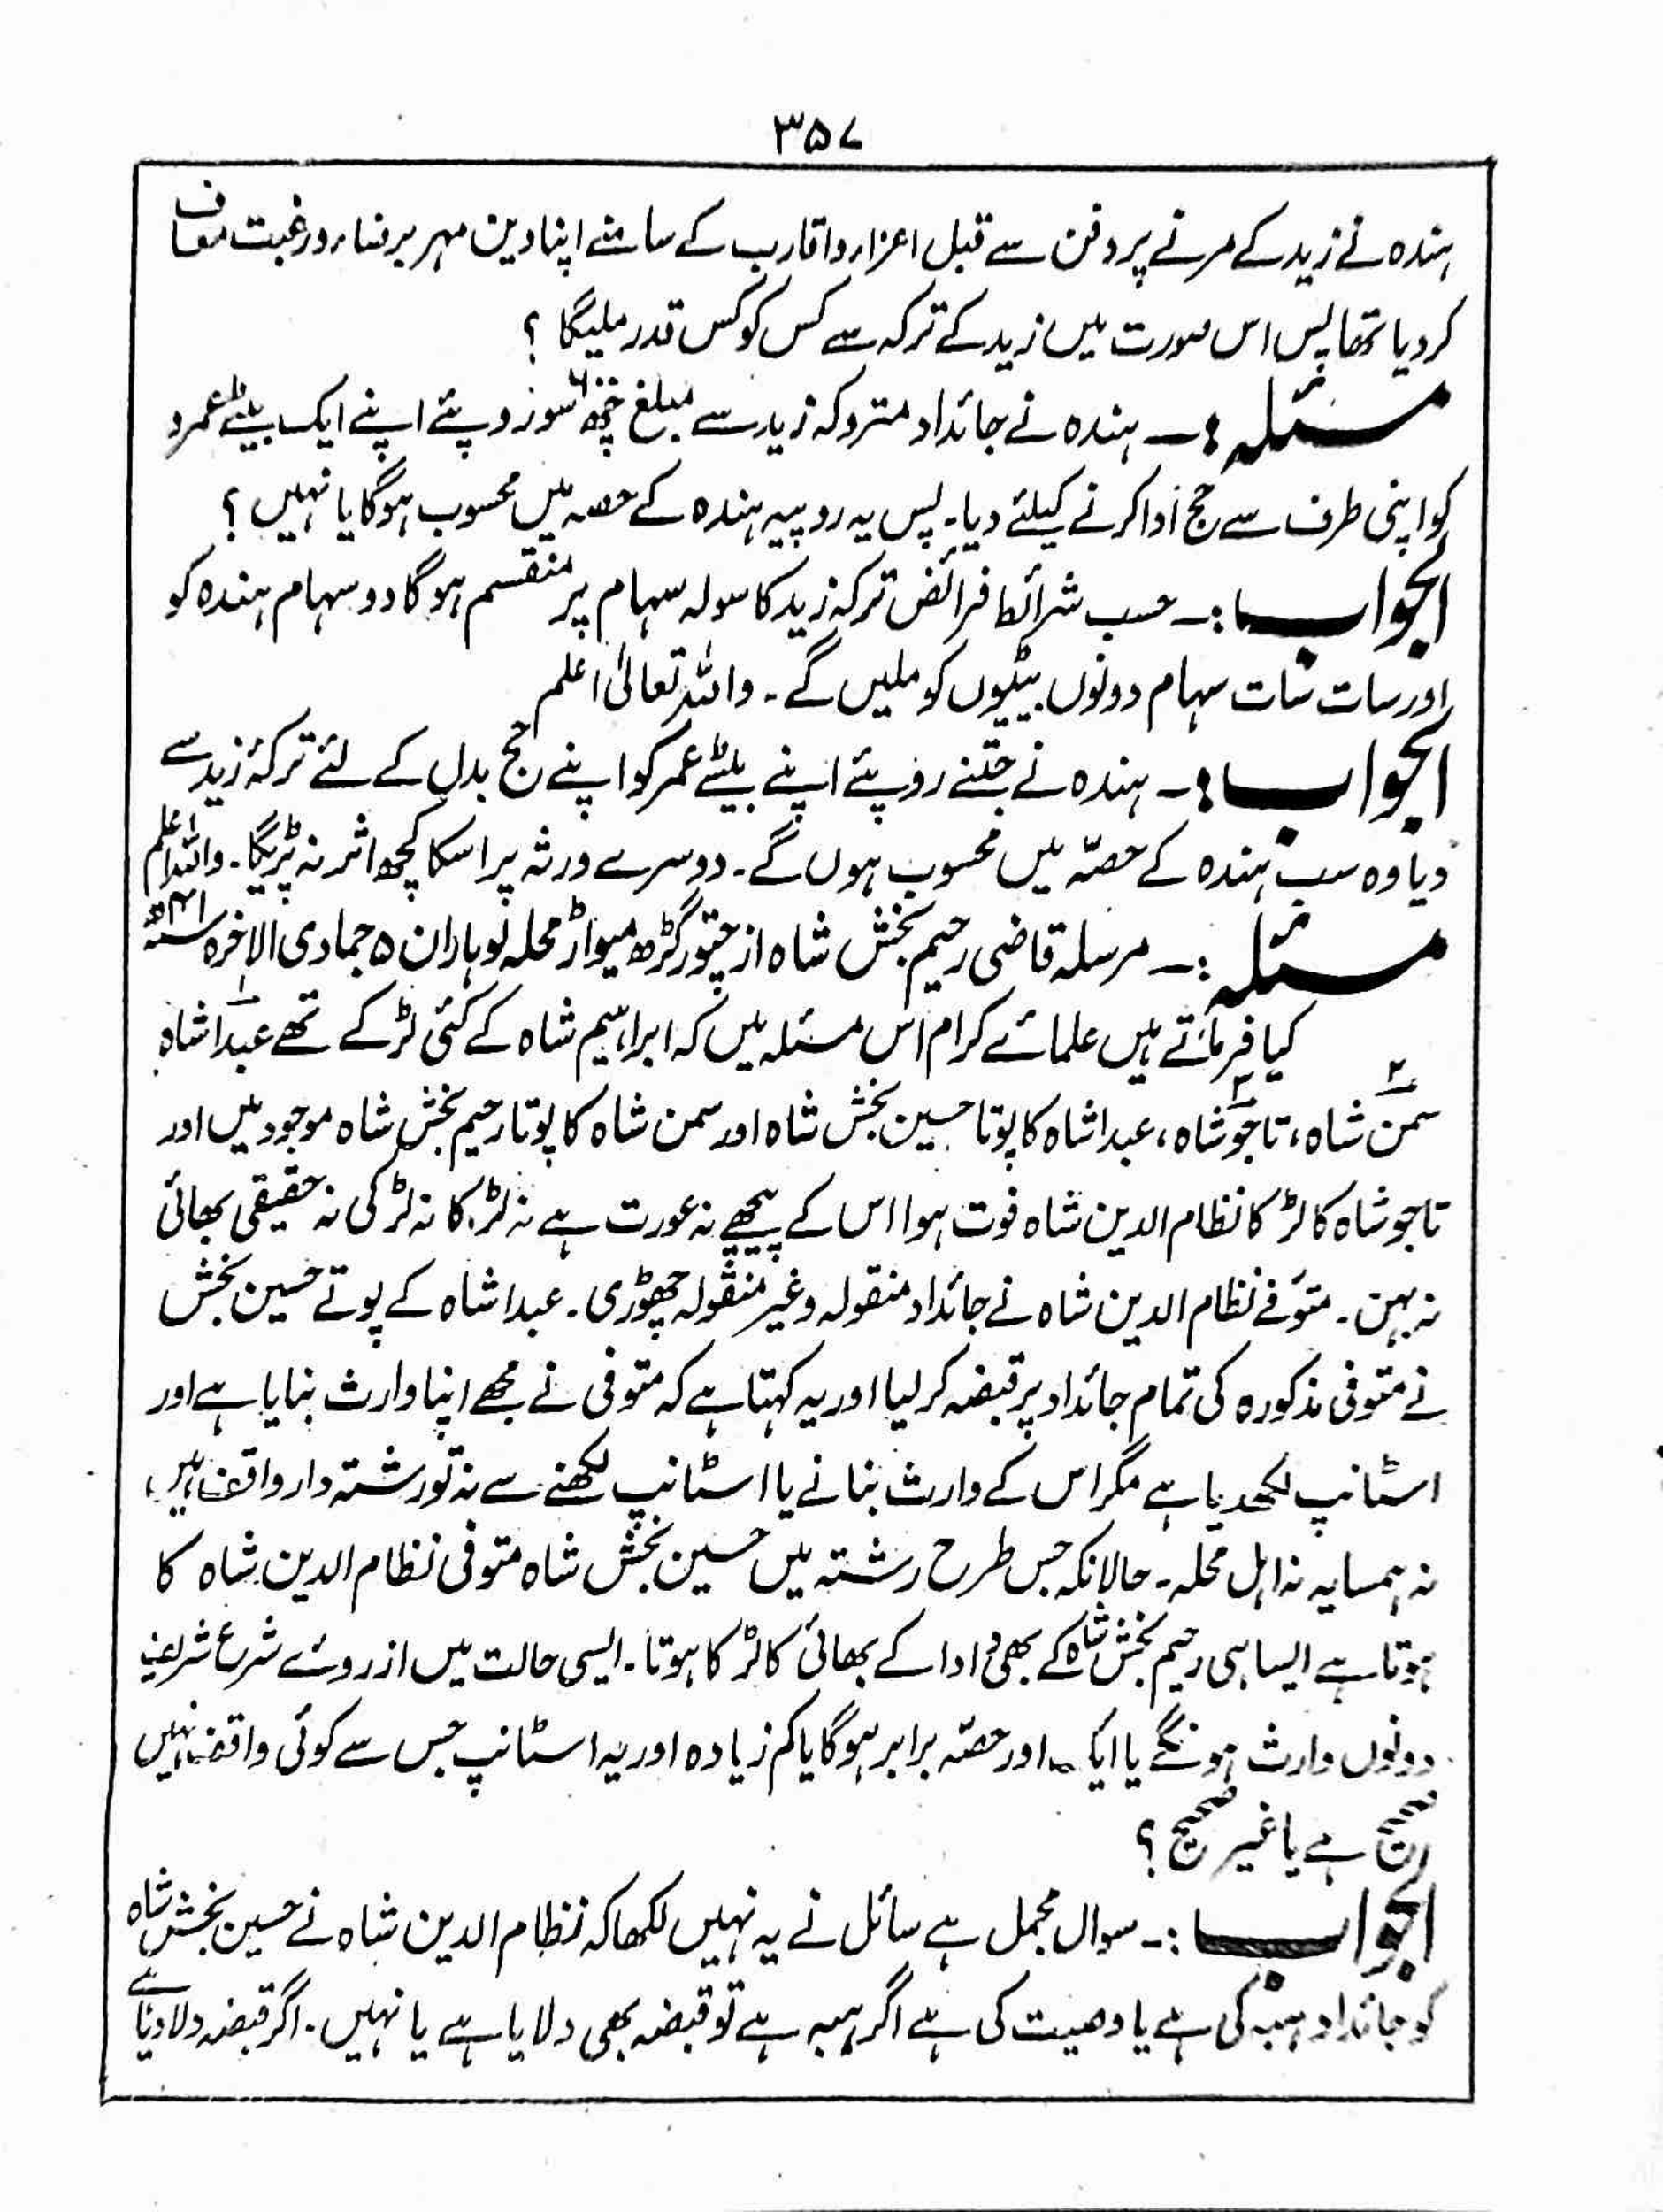 ۳۵۷
ہندہ نے زید کے مرنے پر دفن سے قبل اعزاء واقارب کے سامنے اپنا دین مہر برضاء ورغبت معاف
کردیا تھا پس اس صورت میں زید کے ترکہ سے کس کو کس قدر ملیگا ؟
مسئلہ :۔ ہندہ نے جائداد متروکہ زید سے مبلغ چھ سو روپئے اپنے ایک بیٹے عمرو
کو اپنی طرف سے حج ادا کرنے کیلئے دیا۔ پس یہ روپیہ ہندہ کے حصہ میں محسوب ہوگا یا نہیں ؟
الجواب :۔ حسب شرائط فرائض ترکہ زید کا سولہ سہام پر منقسم ہوگا دو سہام ہندہ کو
اور سات سات سہام دونوں بیٹیوں کو ملیں گے۔ واللہ تعالیٰ اعلم
الجواب :۔ ہندہ نے جتنے روپئے اپنے بیٹے عمر کو اپنے حج بدل کے لئے ترکۂ زید سے
دیا وہ سب ہندہ کے حصّہ میں محسوب ہوں گے۔ دوسرے ورثہ پر اسکا کچھ اثر نہ پڑیگا۔ واللہ اعلم
مسئلہ :۔ مرسلہ قاضی رحیم بخش شاہ از چتورگڑھ میواڑ محلہ لوہاران ۵ جمادی الاخرہ
کیا فرماتے ہیں علمائے کرام اس مسئلہ میں کہ ابراہیم شاہ کے کئی لڑکے تھے عبدا شاہ
سمن شاہ، تاجو شاہ، عبدا شاہ کا پوتا حسین بخش شاہ اور سمن شاہ کا پوتا رحیم بخش شاہ موجود ہیں اور
تاجو شاہ کا لڑکا نظام الدین شاہ فوت ہوا اس کے پیچھے نہ عورت ہے نہ لڑکا نہ لڑکی نہ حقیقی بھائی
نہ بہن۔ متوفے نظام الدین شاہ نے جائداد منقولہ وغیر منقولہ چھوڑی۔ عبدا شاہ کے پوتے حسین بخش
نے متوفی مذکورہ کی تمام جائداد پر قبضہ کر لیا اور یہ کہتا ہے کہ متوفی نے مجھے اپنا وارث بنایا ہے اور
اسٹانپ لکھدیا ہے مگر اس کے وارث بنانے یا اسٹانپ لکھنے سے نہ تو رشتہ دار واقف ہیں
نہ ہمسایہ نہ اہل محلہ۔ حالانکہ جس طرح رشتہ میں حسین بخش شاہ متوفی نظام الدین شاہ کا
ہوتا ہے ایسا ہی رحیم بخش شاہ کے بھی دادا کے بھائی کا لڑکا ہوتا۔ ایسی حالت میں از روئے شرع شریف
دونوں وارث ہونگے یا ایک۔ اور حصّہ برابر ہوگا یا کم زیادہ اور یہ اسٹانپ جس سے کوئی واقف نہیں
صحیح ہے یا غیر صحیح ؟
الجواب :۔ سوال مجمل ہے سائل نے یہ نہیں لکھا کہ نظام الدین شاہ نے حسین بخش شاہ
کو جائداد ہبہ کی ہے یا وصیت کی ہے اگر ہبہ ہے تو قبضہ بھی دلایا ہے یا نہیں۔ اگر قبضہ دلادیا ہے